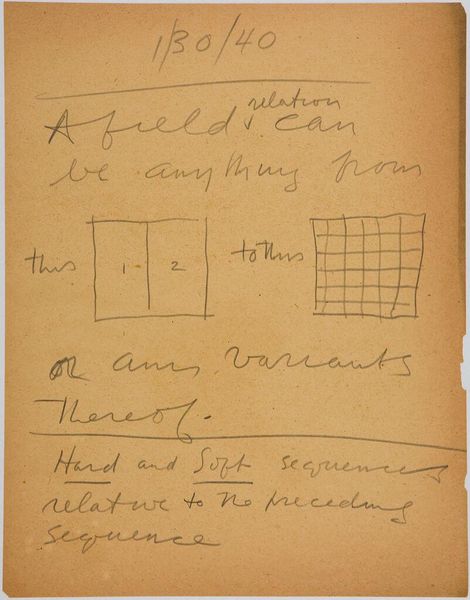 1/30/40
A field relation can
be anything from
this 1 2 to this
or any variants
thereof.
Hard and Soft sequences
relative to the preceding
sequence